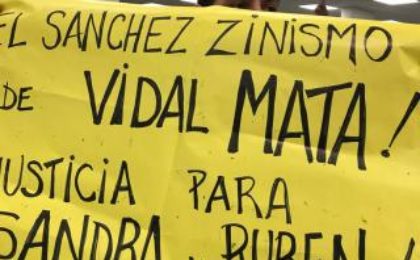 EL SANCHEZ ZINISMO
DE VIDAL MATA!
JUSTICIA PARA
SANDRA, RUBEN